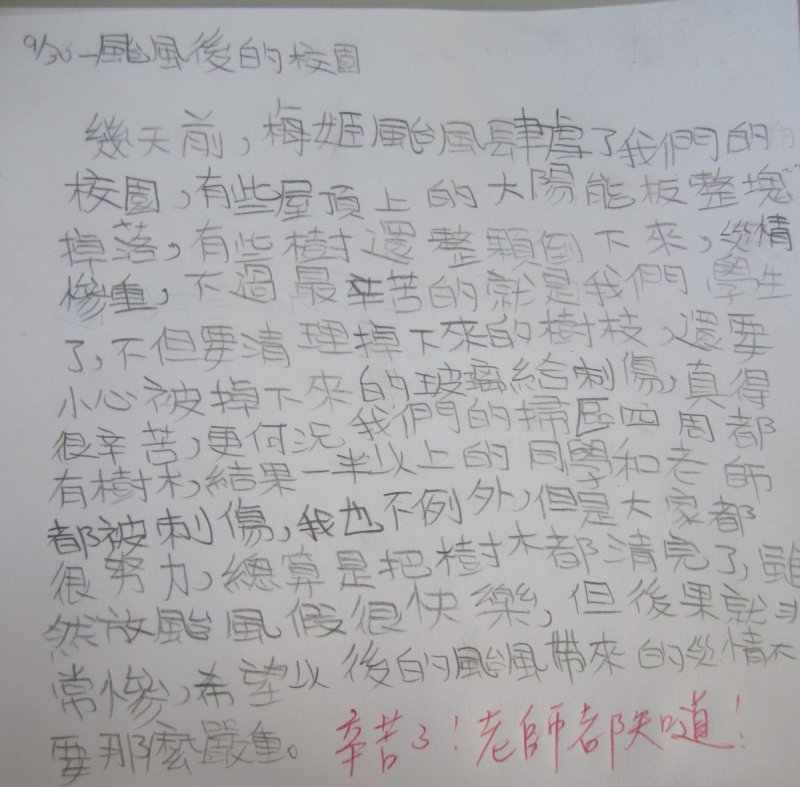 9/30-颱風後的校園
幾天前,梅姬颱風肆虐了我們的
校園,有些屋頂上的大陽能板整塊
掉落,有些樹還整顆倒下來,災情
慘重,不過最辛苦的就是我們學生
了,不但要清理掉下來的樹枝,還要
小心被掉下來的玻璃給刺傷,真得
很辛苦,更何況我們的掃區四周都
有樹木,結果一半以上的同學和老師
都被刺傷,我也不例外,但是大家都
很努力,總算是把樹木都清完了,雖
然放颱風假很快樂,但後果就
常慘,希望以後的颱風帶來的災情不
要那麼嚴重。 辛苦了!老師都知道!